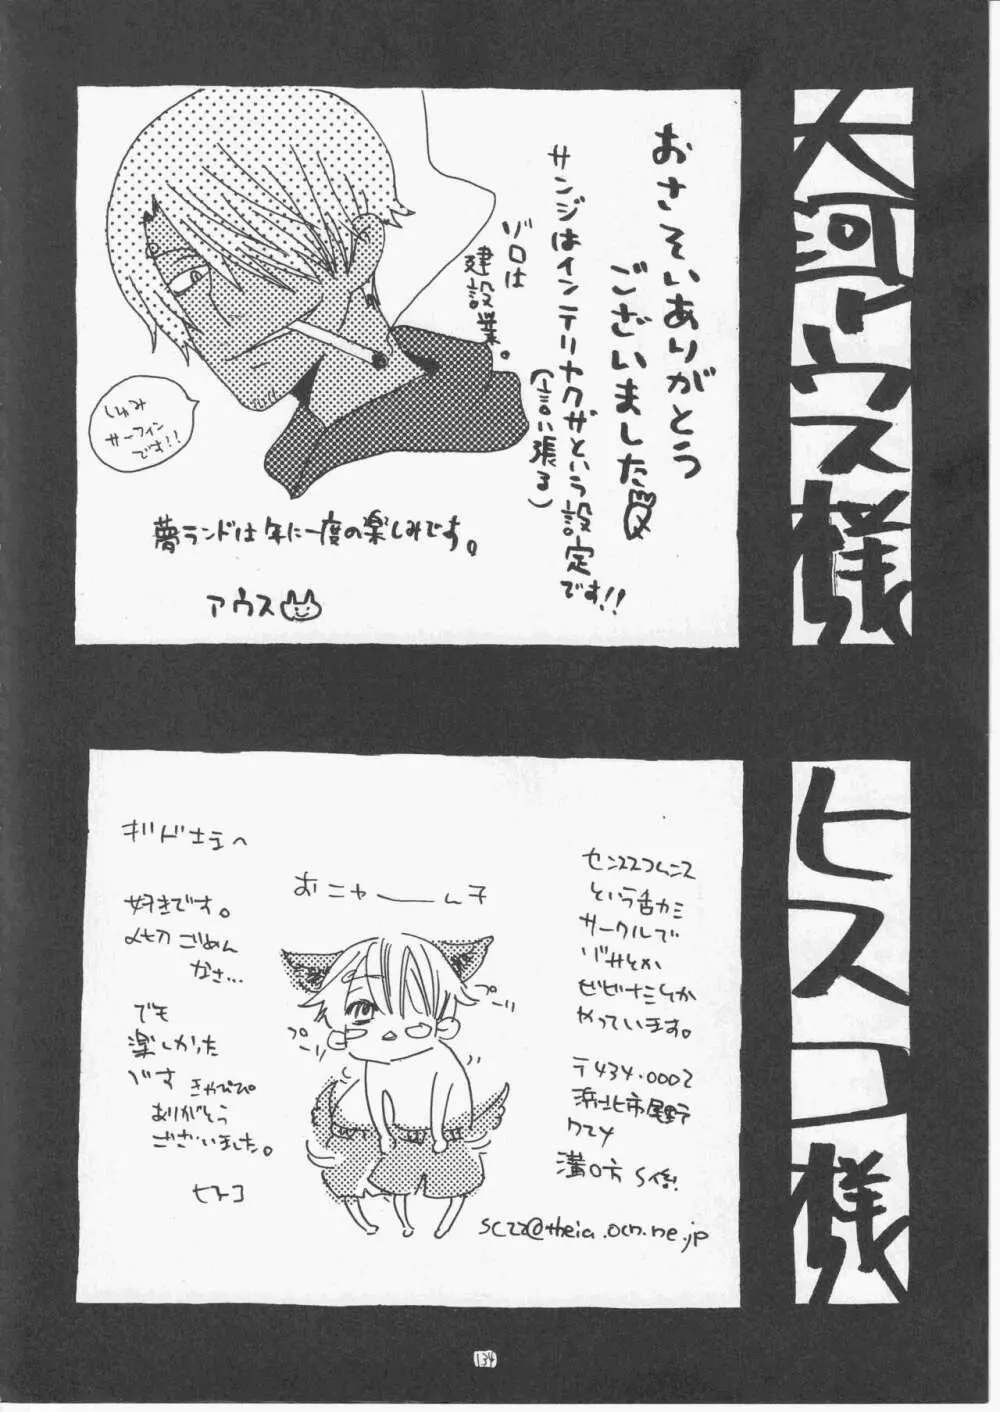 大河アウス様
おさそいありがとう
ございました
サンジはインテリヤクザという設定です!!
(言い張る)
ゾロは
建設業。
しじみ
サーフィン
です!!
夢ランドは年に一度の楽しみです。
アウス
ヒスコ様
センススコムニス
という
サークルで
ゾサとか
ゼビナミとか
やっています。
〒434.0002
浜北市尾野
溝口方 S係.
sc22@theia.ocn.ne.jp
おニャーん子
プーリ
プーリ
好きです。
〆切ごめん
なさ…
でも
楽しかった
です
きゃぴぴ
ありがとう
ございました。
ヒスコ
134